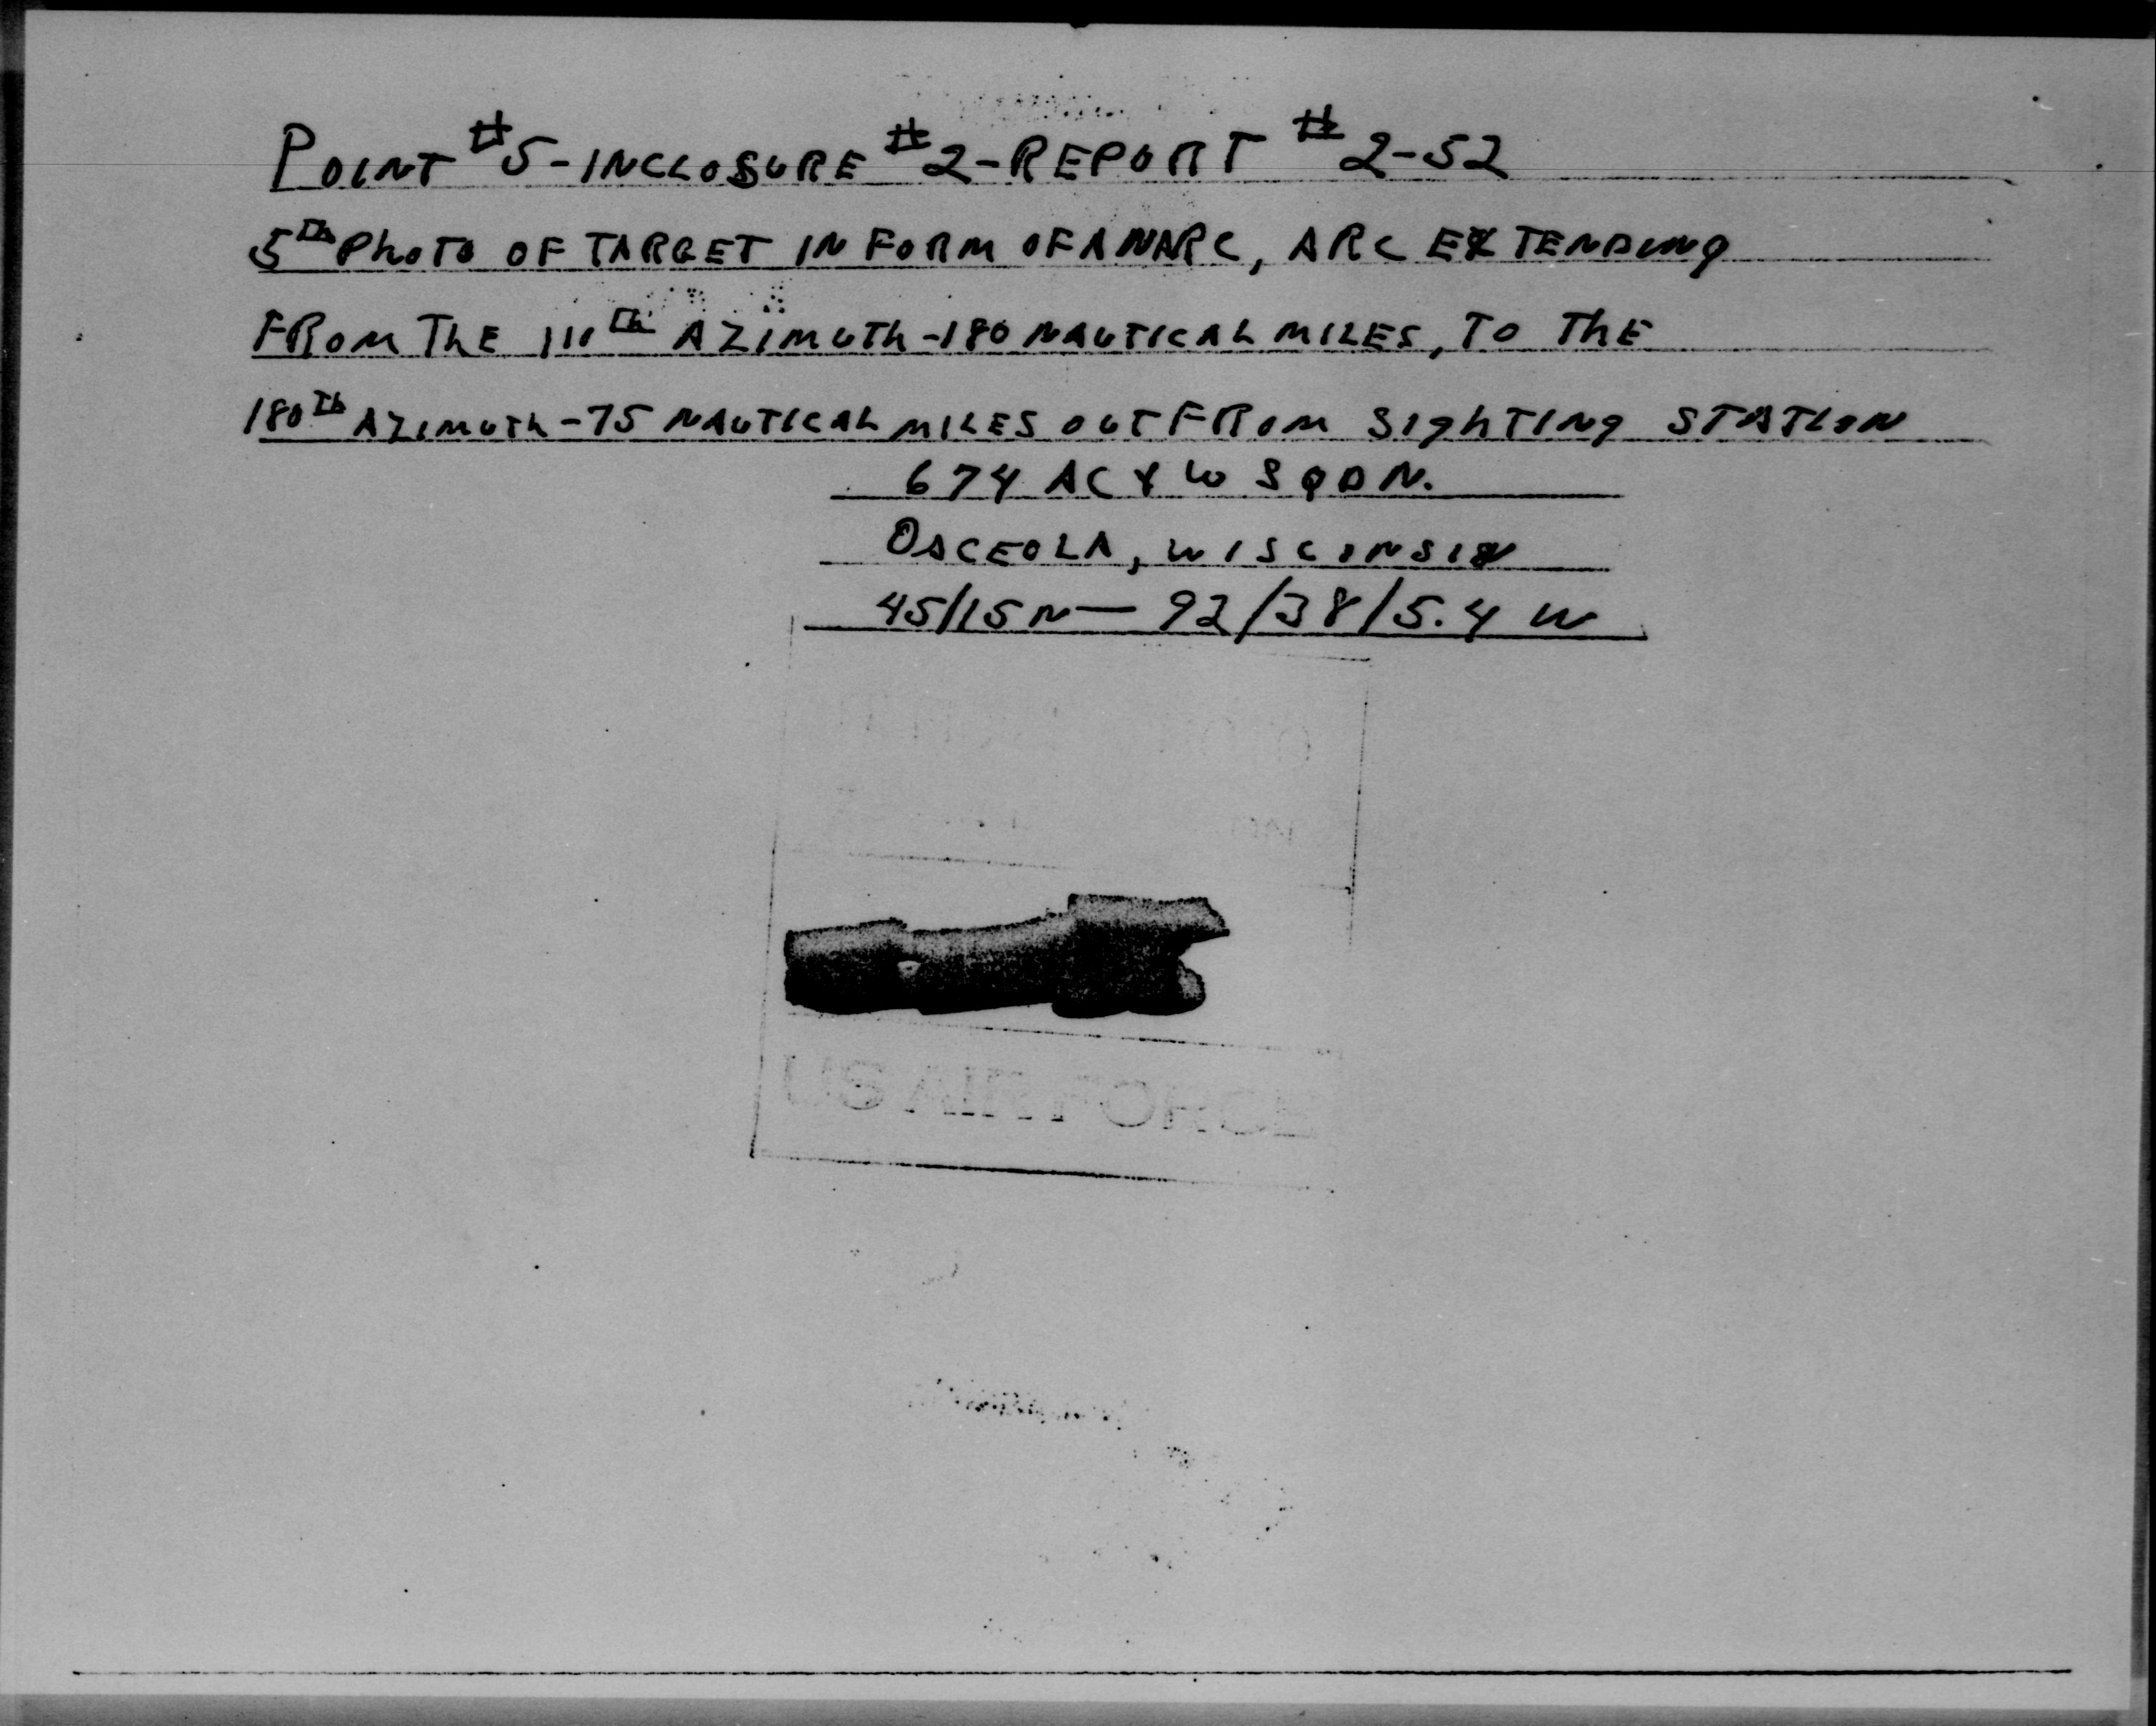 POINT #5-INCLOSURE #2-REPORT #2-52
5Th PhoTO OF TARGET IN FORM OF AN ARC, ARC EXTENDING
FROM ThE 110Th AZIMUTh-180 NAUTICAL MILES, TO ThE
180Th AZIMUTh-75 NAUTICAL MILES OUT FROM SIghTINg STATION
674 AC&W SQDN.
OSCEOLA, WISCONSIN
45/15N — 92/38/5.4 W
US AIR FORCE